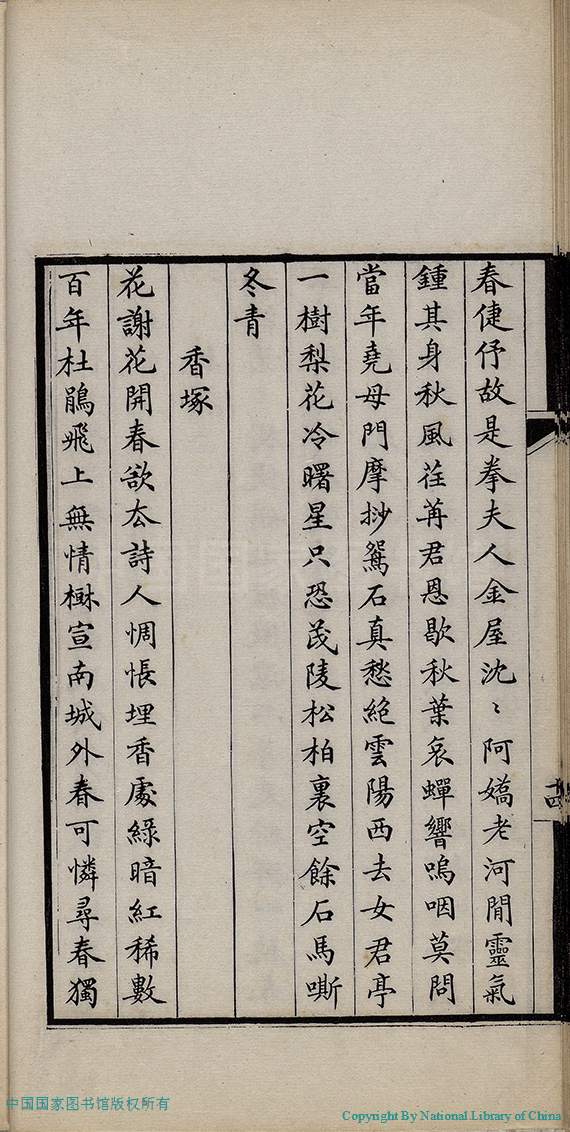 春倢伃故是拳夫人金屋沈〻阿嬌老河間靈氣
鍾其身秋風荏苒君恩歇秋葉哀蟬響嗚咽莫問
當年堯母門摩挱鴛石真愁絕雲陽西去女君亭
一樹梨花冷曙星只恐茂陵松柏裏空餘石馬嘶
冬青
香塚
花謝花開春欲厺詩人惆悵埋香處綠暗紅稀數
百年杜鵑飛上無情楙宣南城外春可憐尋春獨
十四
中国国家图书馆版权所有
Copyright By National Library of China